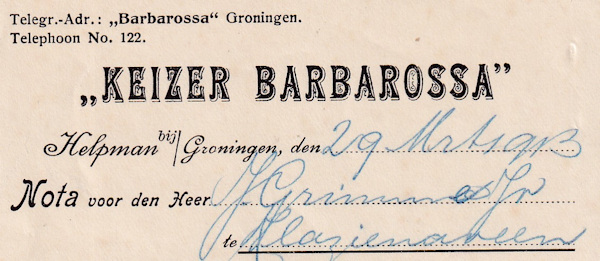 Telegr.-Adr.: „Barbarossa” Groningen.
Telephoon No. 122.
„KEIZER BARBAROSSA”
Helpman bij/Groningen, den 29 Mrt 1913
Nota voor den Heer
te Klazienaveen